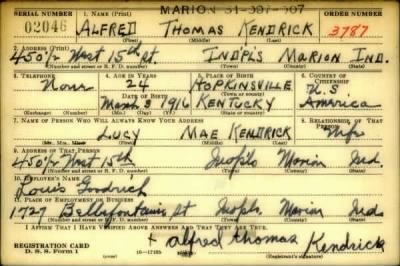 MARION 51-307-507
SERIAL NUMBER 1. NAME (Print) ORDER NUMBER
02046 ALFRED THOMAS KENDRICK 3787
(First) (Middle) (Last)
2. ADDRESS (Print)
450½ West 15th St. INDPLS MARION IND.
(Number and street or R. F. D. number) (Town) (County) (State)
3. TELEPHONE 4. AGE IN YEARS 5. PLACE OF BIRTH 6. COUNTRY OF CITIZENSHIP
None 24 HOPKINSVILLE U.S
DATE OF BIRTH
March 3 1916 KENTUCKY America
(Exchange) (Number) (Mo.) (Day) (Yr.) (State or country)
7. NAME OF PERSON WHO WILL ALWAYS KNOW YOUR ADDRESS 8. RELATIONSHIP OF THAT PERSON
LUCY MAE KENDRICK Wife
(Mr., Mrs., Miss) (First) (Middle) (Last)
9. ADDRESS OF THAT PERSON
450½ West 15th Indpls Marion Ind.
(Number and street or R. F. D. number) (Town) (County) (State)
10. EMPLOYER'S NAME
Louis Goodrich
11. PLACE OF EMPLOYMENT OR BUSINESS
1727 Bellefontaine St Indpls. Marion Ind
(Number and street or R. F. D. number) (Town) (County) (State)
I AFFIRM THAT I HAVE VERIFIED ABOVE ANSWERS AND THAT THEY ARE TRUE.
REGISTRATION CARD
D. S. S. Form 1 16-17105 + alfred thomas Kendrick
(Registrant's signature)